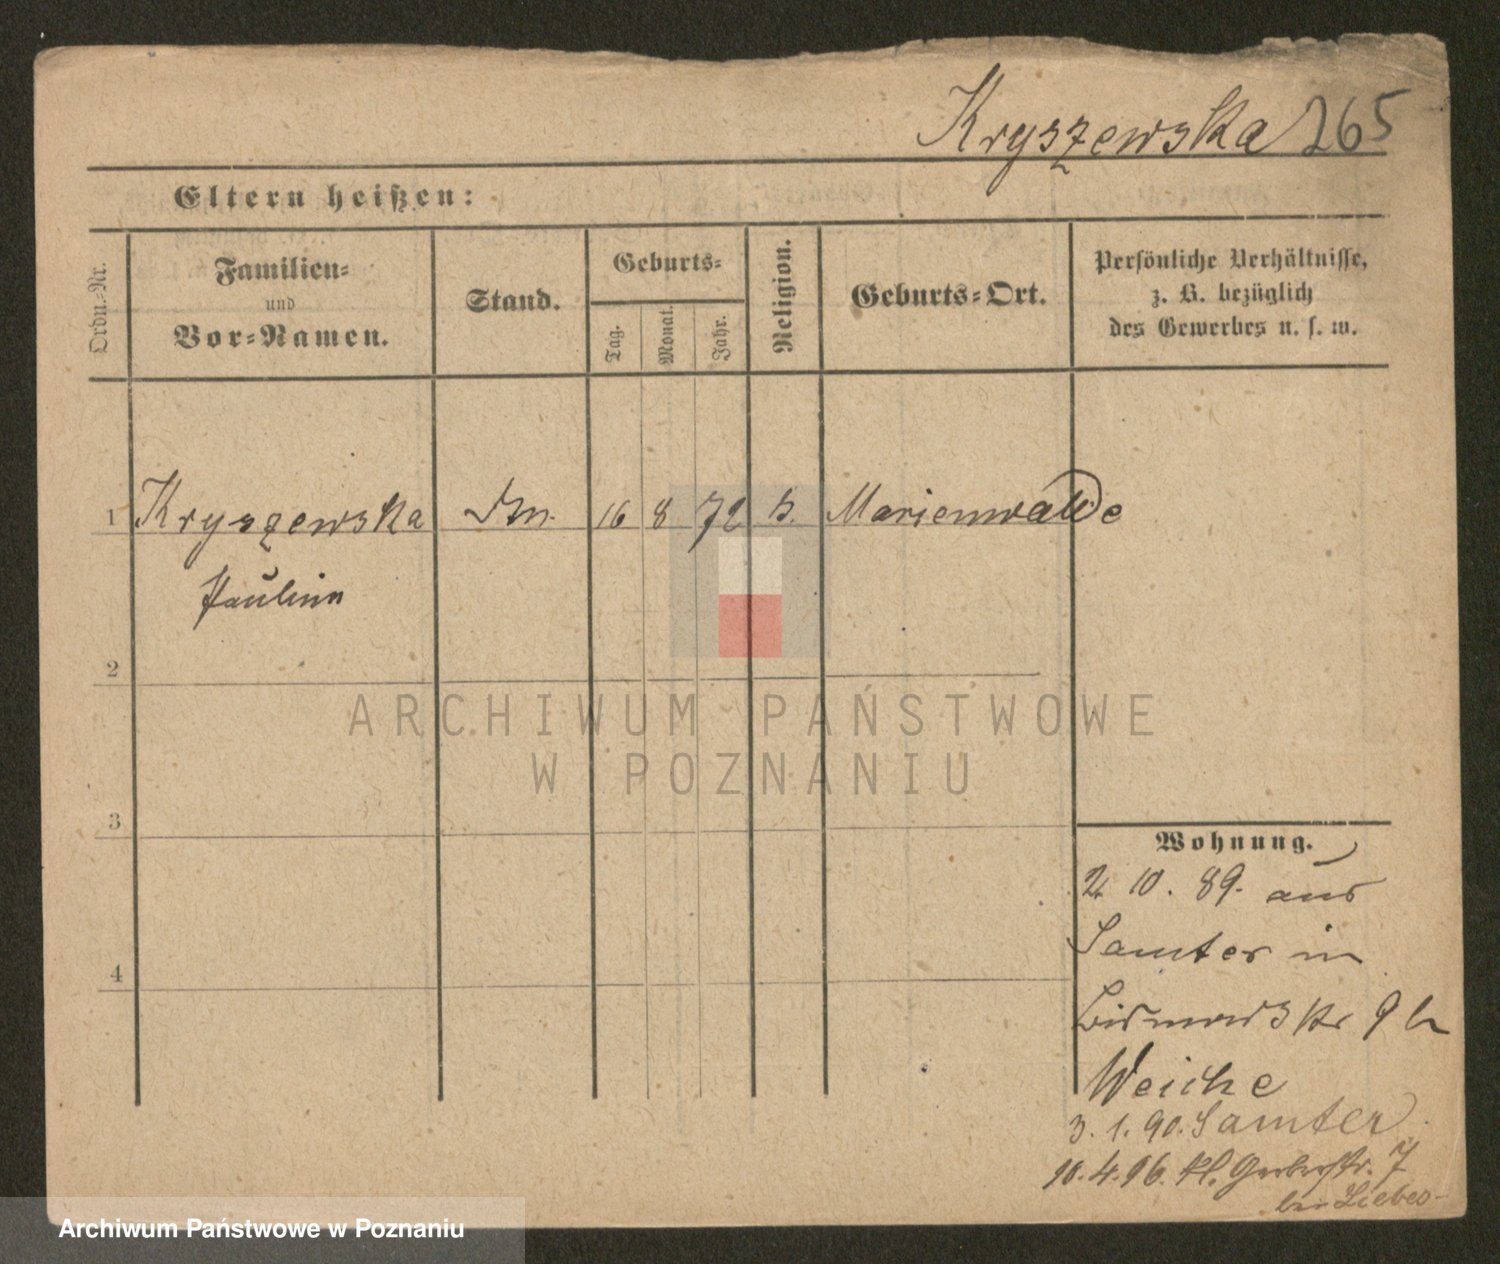 Kryszewska 265
Eltern heißen:
Ordn.-Nr.
Familien-
und
Vor-Namen.
Stand.
Geburts-
Tag.
Monat.
Jahr.
Religion.
Geburts-Ort.
Persönliche Verhältnisse,
z. B. bezüglich
des Gewerbes u. s. w.
1 Kryszewska 16 8 72 Marienwalde
Paulina
2
ARCHIWUM PAŃSTWOWE
W POZNANIU
3
4
Wohnung.
2 10. 89. aus
Samter in
Bismarckstr 9 b
Weiche
3. 1. 90. Samter
10. 4. 96. kl. Gerberstr. 7
bei Liebes-
Archiwum Państwowe w Poznaniu